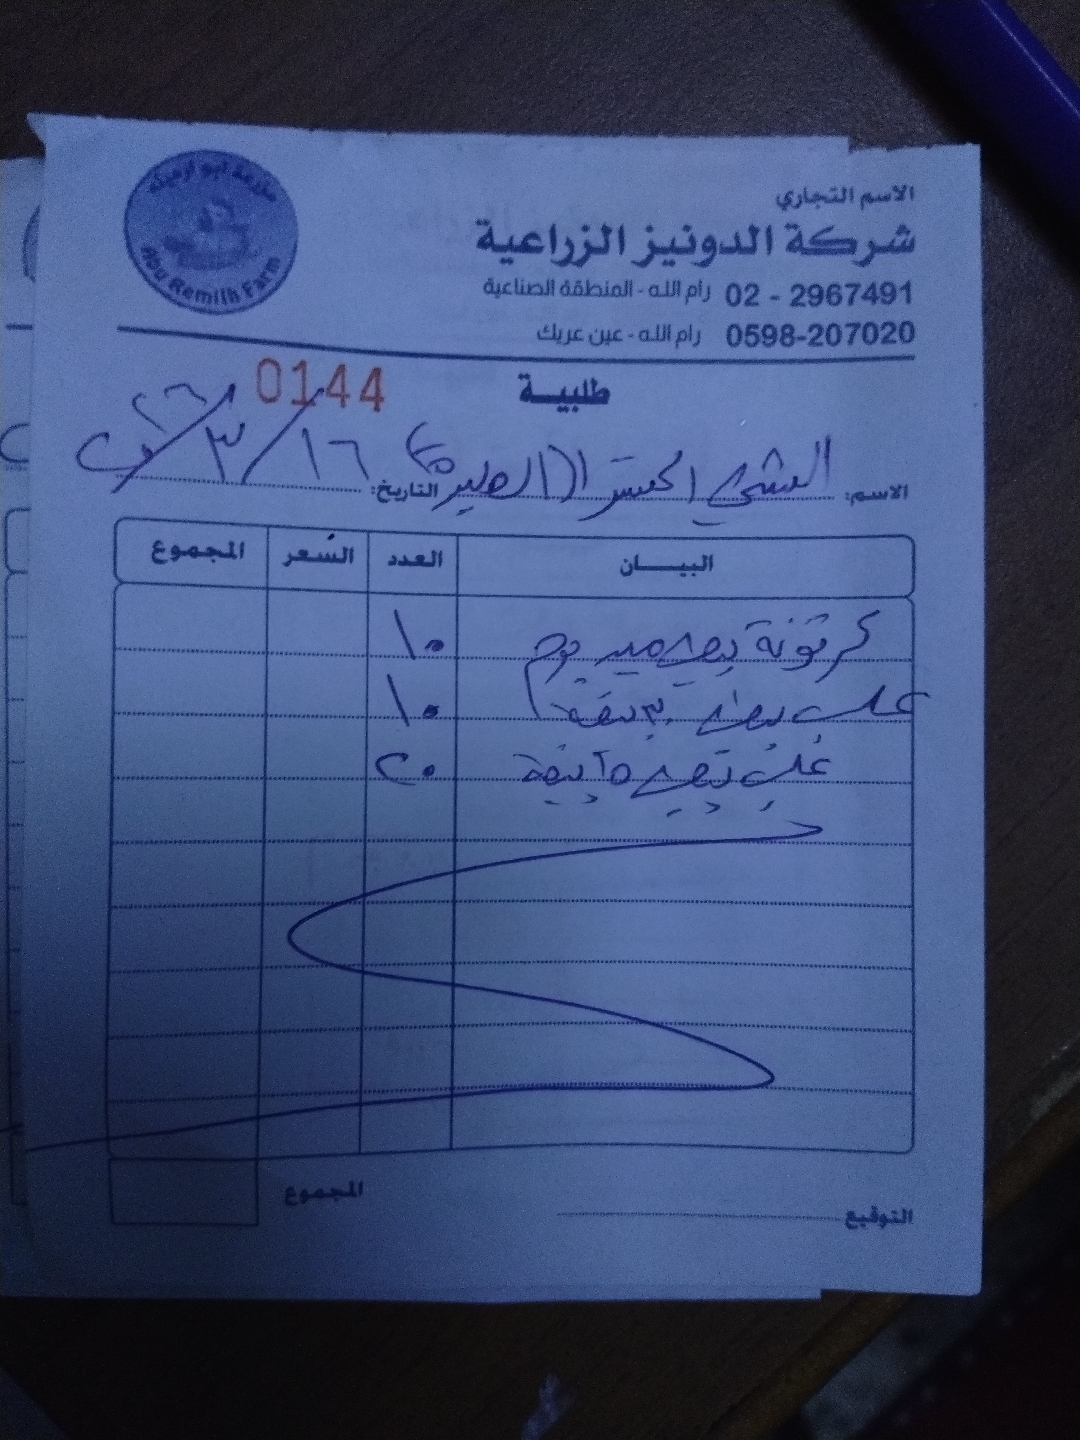 مزرعة ابو ارميله
Abu Remilh Farm
الاسم التجاري
شركة الدونيز الزراعية
02 - 2967491 رام الله - المنطقة الصناعية
0598-207020 رام الله - عين عريك
0144
طلبية
الاسم: التاريخ: ١٦/٣/
البيـــان العدد السعر المجموع
كرتونة بيض ١٠
علب بيض ٣٠ بيضة ١٠
علب بيض ١٥ بيضة ٢٠
المجموع
التوقيع